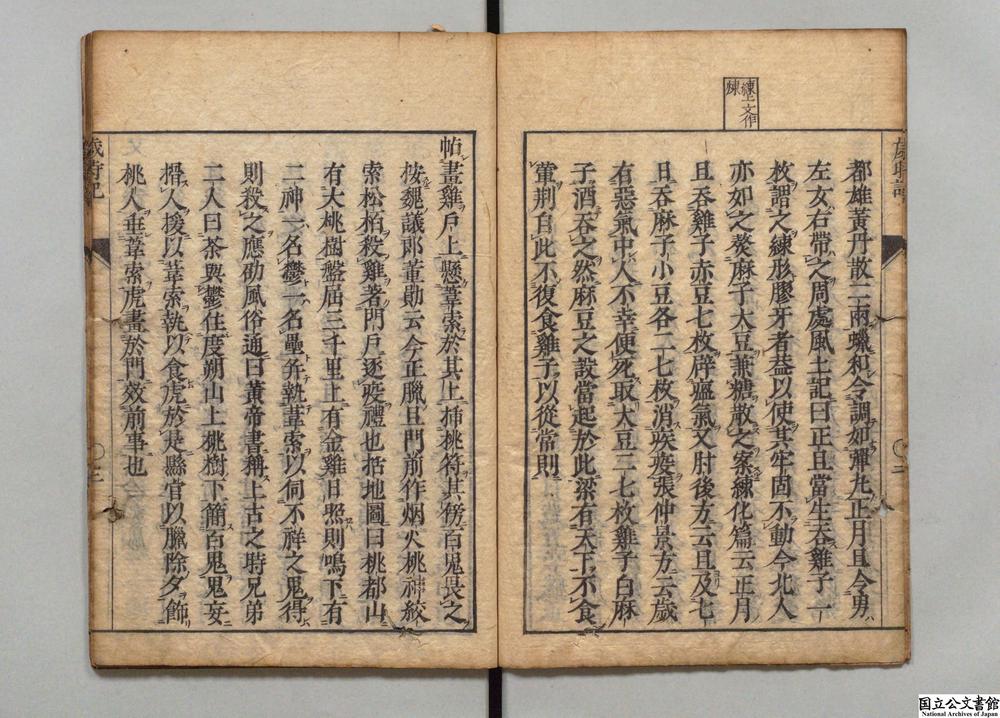 練上文作
煉
歲時記
二
都雄黃丹散二兩蠟和令調如彈丸正月旦令男
左女右帶之周處風土記曰正旦當生吞雞子一
枚謂之練形膠牙者葢以使其牢固不動今北人
亦如之熬麻子大豆兼糖散之案練化篇云正月
旦吞雞子赤豆七枚辟瘟氣又肘後方云旦及七
日吞麻子小豆各二七枚消疾疫張仲景方云歲
有惡氣中人不幸便死取大豆二七枚雞子白麻
子酒吞之然麻豆之設當起於此梁有天下不食
葷荆自此不復食雞子以從常則
帖畫雞戶上懸葦索於其上挿桃符其傍百鬼畏之
按魏議郎董勛云今正臘旦門前作烟火桃神絞
索松柏殺雞著門戶逐疫禮也括地圖曰桃都山
有大桃樹盤屈三千里上有金雞日照則鳴下有
二神一名鬱一名壘并執葦索以伺不祥之鬼得
則殺之應劭風俗通曰黃帝書稱上古之時兄弟
二人曰荼與鬱住度朔山上桃樹下簡百鬼鬼妄
搰人援以葦索執以食虎於是縣官以臘除夕飾
桃人垂葦索虎畫於門效前事也
歲時記
国立公文書館
National Archives of Japan